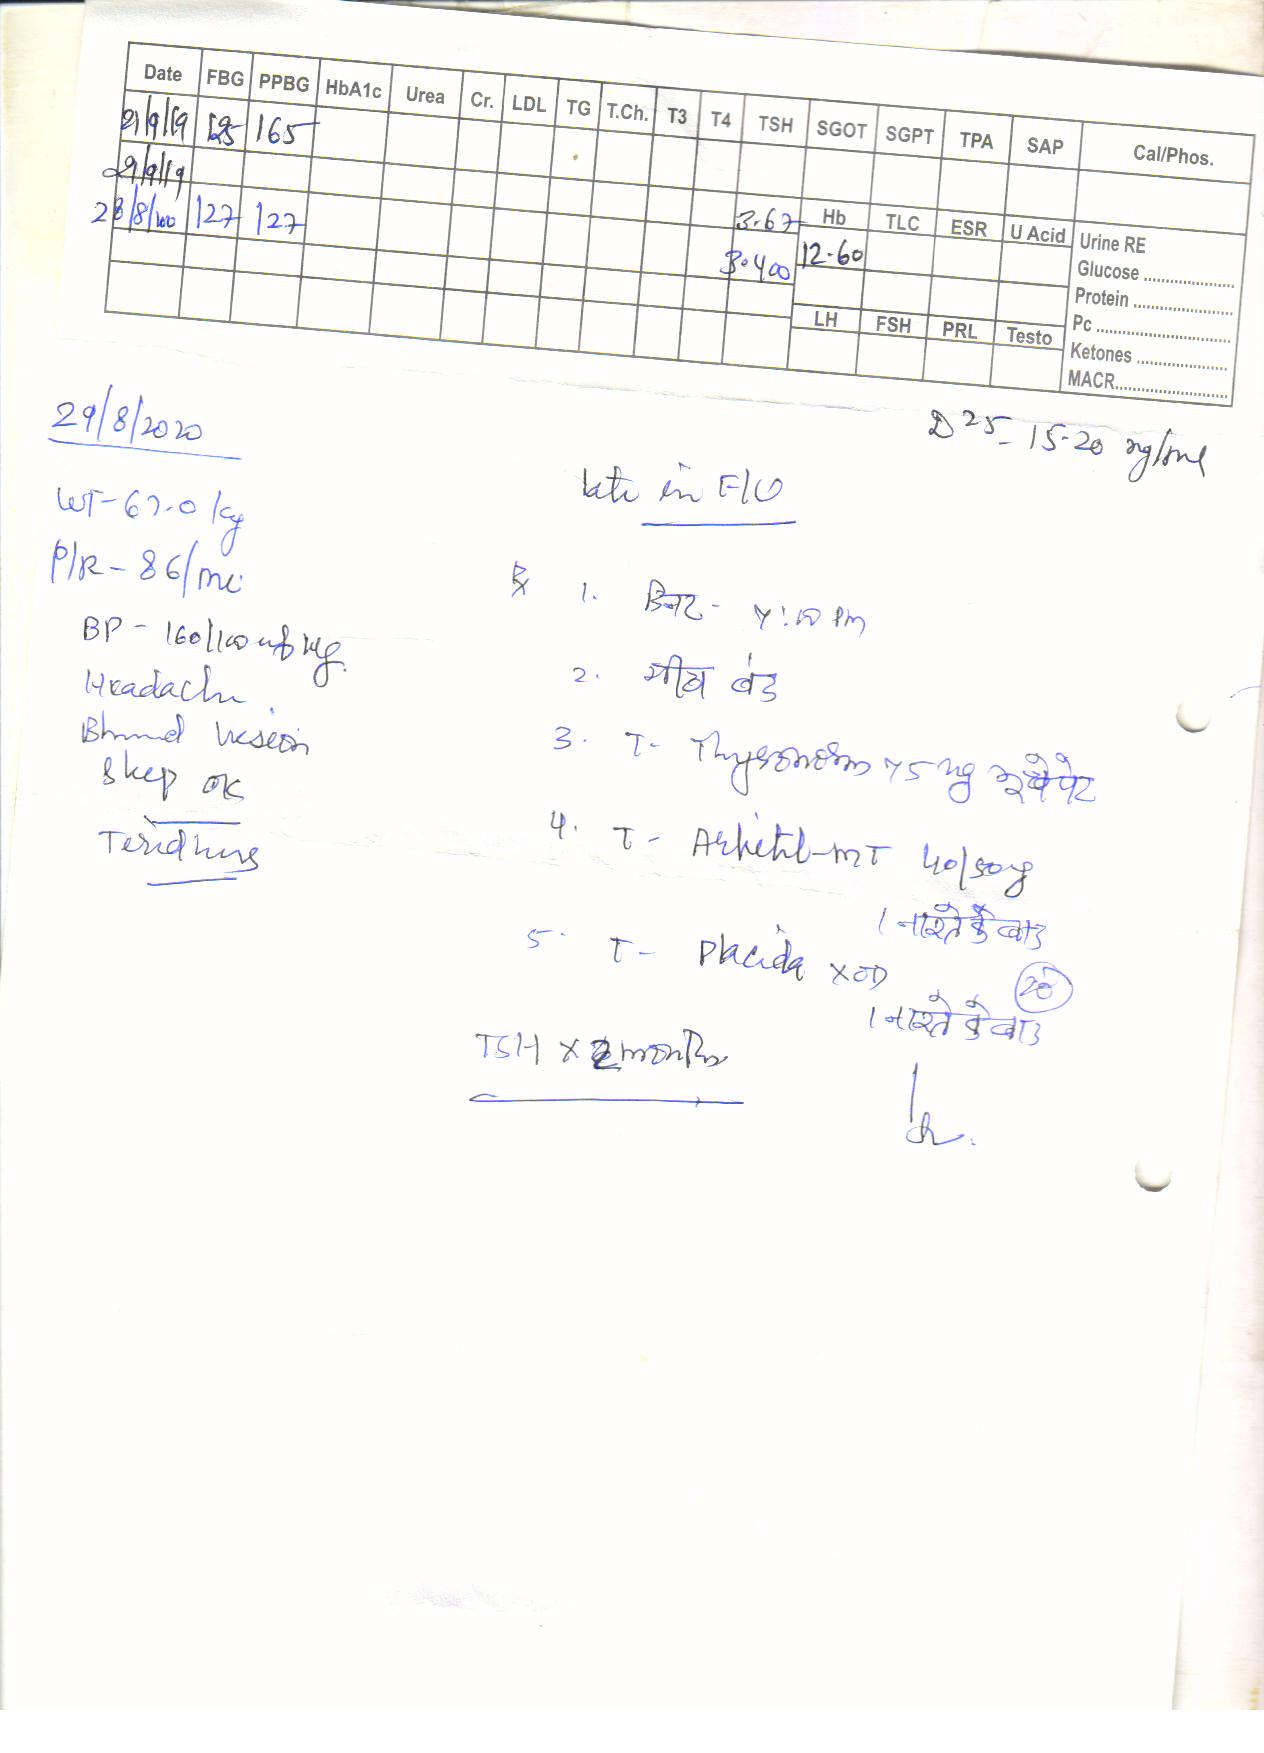 Date FBG PPBG HbA1c Urea Cr. LDL TG T.Ch. T3 T4 TSH SGOT SGPT TPA SAP Cal/Phos.
21/9/19 125 165
29/9/19
28/8/ 127 127 3.67
Hb TLC ESR U Acid Urine RE
3.400 12.60
Glucose
Protein
LH FSH PRL Testo Pc
Ketones
MACR
29/8/2020
D 25- 15-20 ng/ml
late in F/U
WT-67.0 kg
P/R - 86/mi
BP - 160/100 mg Hg.
Headache
vision
Sleep OK
1.
2. बंद
3. T- Thyronorm 75 mg
4. T- Arkitel-MT 40/50 mg
1 नाश्ते के बाद
5. T- Placida X OD 20
1 नाश्ते के बाद
TSH X 2 months